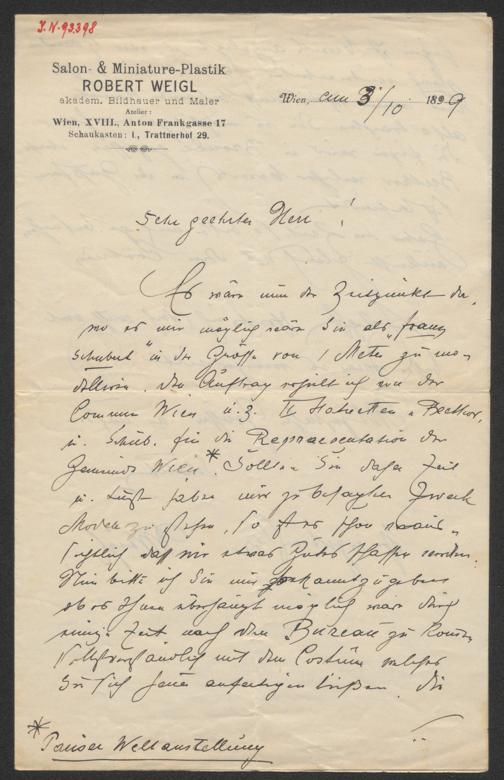 J.N. 93.398
Salon- & Miniature-Plastik
ROBERT WEIGL
akadem. Bildhauer und Maler
Atelier:
Wien, XVIII., Anton Frankgasse 17
Schaukasten: I., Trattnerhof 29.
Wien, am 3/10 1899
Sehr geehrter Herr!
Es wäre nun der Zeitpunkt da,
wo es mir möglich wäre Sie als „Franz
Schubert" in der Größe von 1 Meter zu mo-
dellieren. Den Auftrag erhielt ich von der
Commun Wien u. z. II Statuetten, Beethov.
u. Schub. für die Repraesentation der
Gemeinde Wien * Sollten Sie daher Zeit
u. Lust haben mir zu besagten Zweck
Modell zu stehen, so ist es schon voraus-
sichtlich daß wir etwas Gutes schaffen werden.
Nun bitte ich Sie mir bekanntzugeben
ob es Ihnen überhaupt möglich wär durch
einige Zeit nach dem Bureau zu kommen
selbstverständlich mit dem Costüm welches
Sie sich seiner anfertigen ließen. Die
* Pariser Weltausstellung